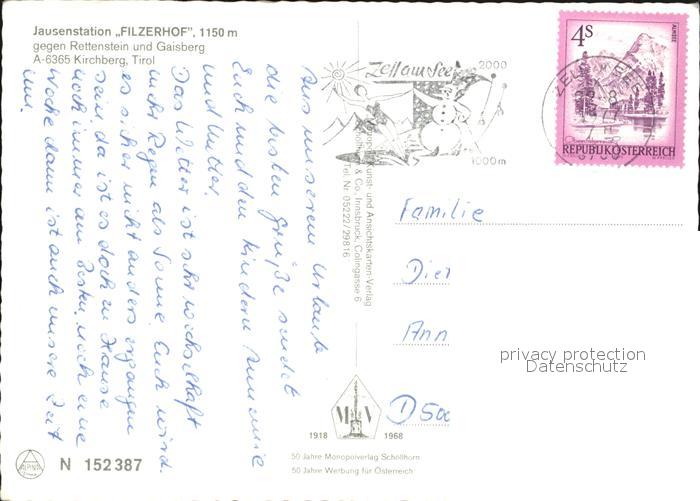 Jausenstation „FILZERHOF", 1150 m
gegen Rettenstein und Gaisberg
A-6365 Kirchberg, Tirol
Aus unserem Urlaub
die besten Grüße sendet
Euch und den Kindern Annemie
und Mutter.
Das Wetter ist sehr wechselhaft
mehr Regen als Sonne. Euch wird
es sicher nicht anders ergangen
sein, da ist es doch zu Hause
noch immer am besten. noch eine
Woche dann ist auch unsere Zeit
um.
N 152387
ALPINA
Zell am See
2000
1000 m
4S
ALMSEE
REPUBLIK ÖSTERREICH
Monopol Kunst- und Ansichtskarten-Verlag
& Co., Innsbruck, Colingasse 6
Tel. Nr. 05222/29816
Familie
Diet
Ann
D 500
privacy protection
Datenschutz
M V
1918 1968
50 Jahre Monopolverlag Schöllhorn
50 Jahre Werbung für Österreich